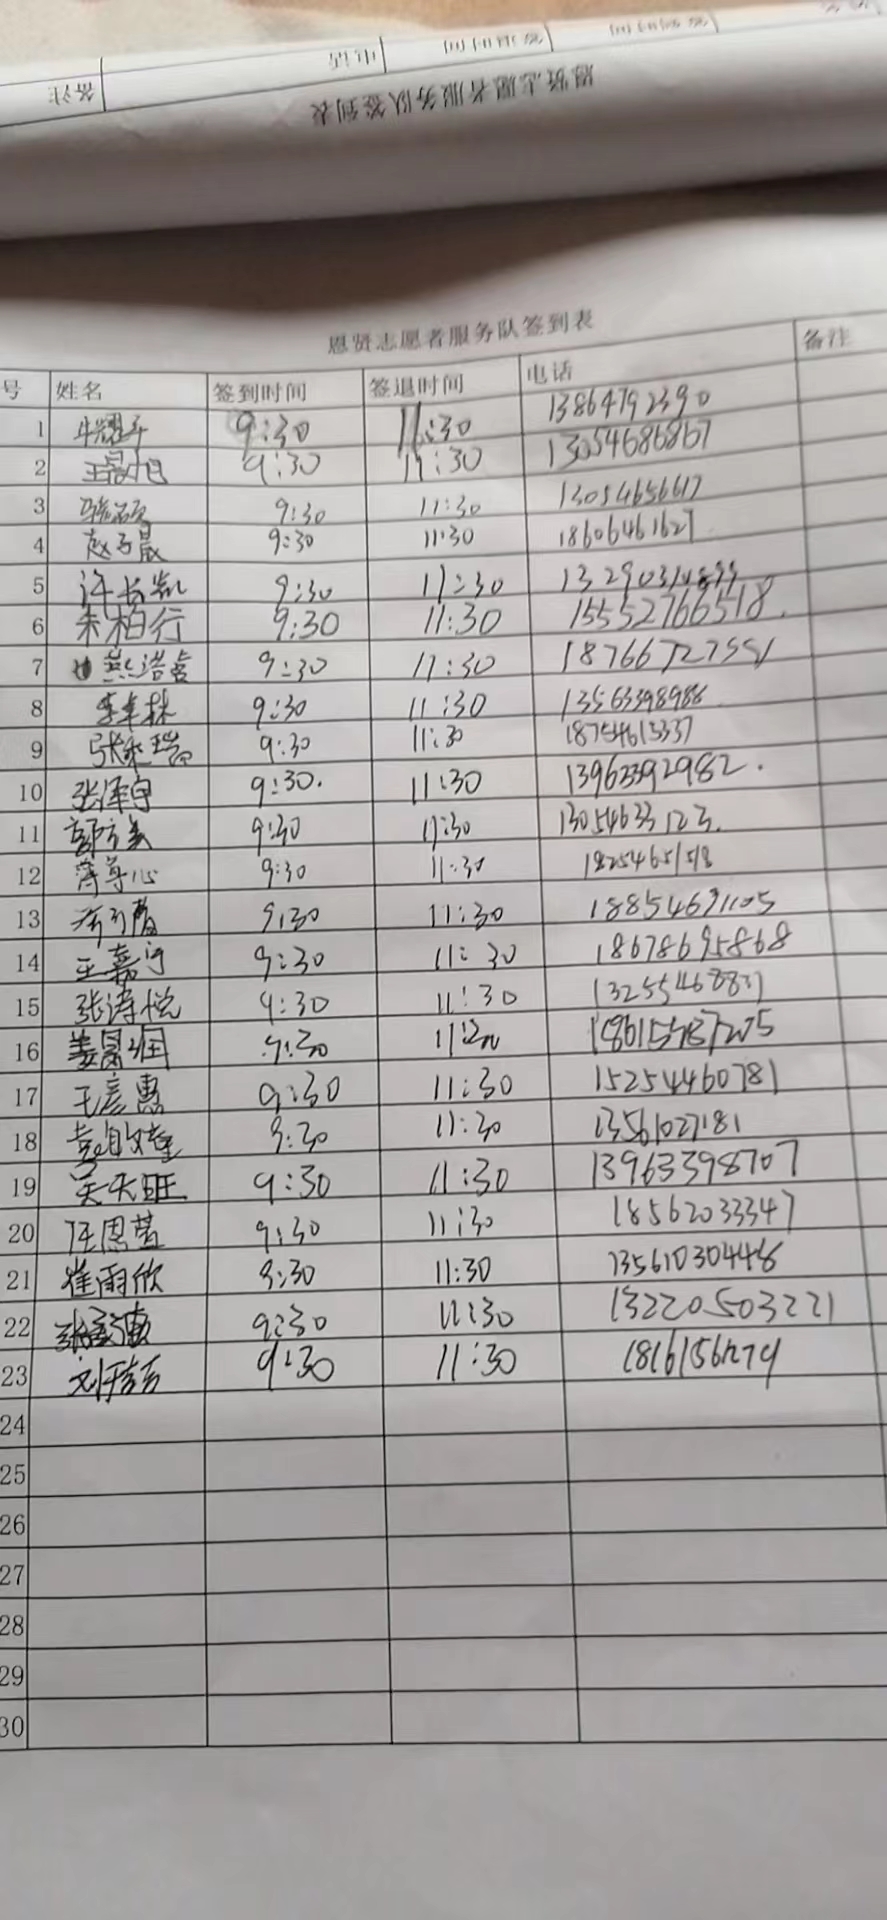 恩贤志愿者服务队签到表
备注 电话
恩贤志愿者服务队签到表
号 姓名 签到时间 签退时间 电话 备注
1 9:30 11:30 13864792390
2 王晨旭 9:30 11:30 13054686867
3 9:30 11:30 13054656617
4 赵子晨 9:30 11:30 18606461627
5 许长凯 9:30 11:30
6 朱柏行 9:30 11:30 15552766518
7 燕浩喜 9:30 11:30
8 李卓林 9:30 11:30 13563398988
9 张永瑞 9:30 11:30 18754615337
10 张泽宇 9:30 11:30 13963392982
11 9:30 11:30 13054633123
12 薄尊心 9:30 11:30 18254651518
13 9:30 11:30 18854691105
14 王嘉宁 9:30 11:30 18678695868
15 张涛悦 9:30 11:30
16 9:30 11:30
17 王彦惠 9:30 11:30 15254460781
18 9:30 11:30 13561027181
19 吴天旺 9:30 11:30 13963398707
20 任恩营 9:30 11:30 18562033347
21 崔雨欣 9:30 11:30 13561030448
22 9:30 11:30 13220503221
23 9:30 11:30
24
25
26
27
28
29
30